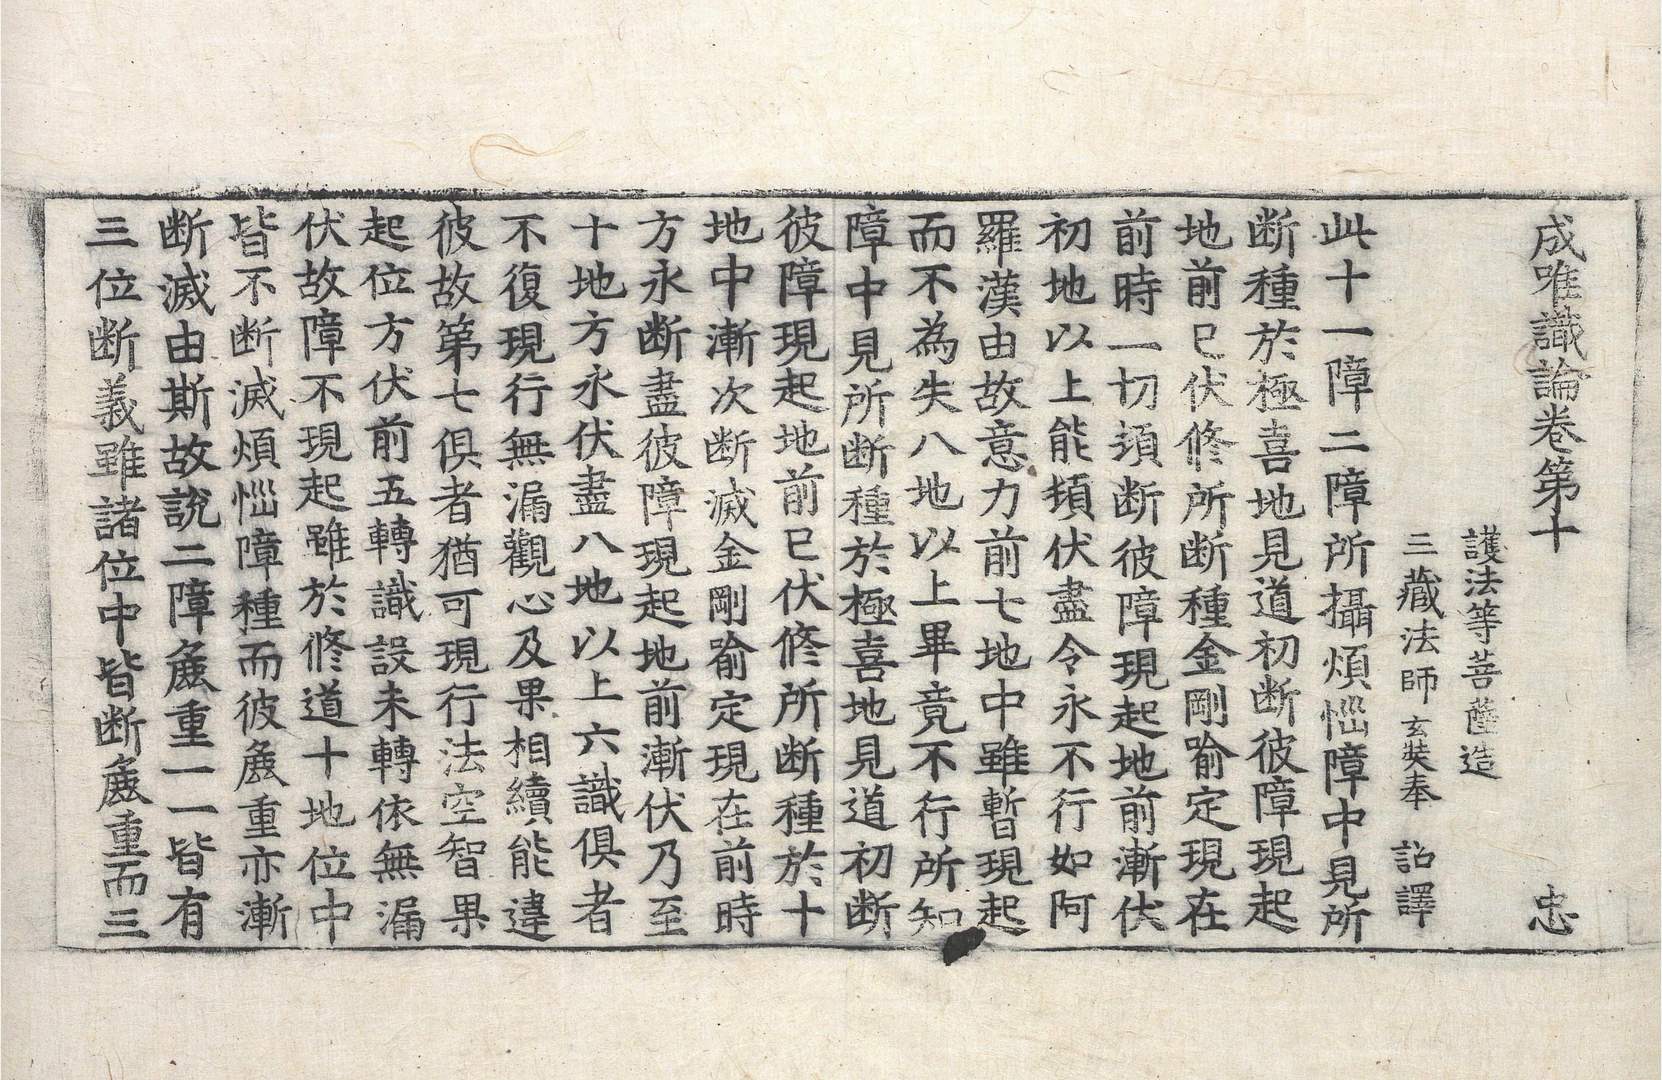 成唯識論卷第十 忠
護法等菩薩造
三藏法師玄奘奉 詔譯
此十一障二障所攝煩惱障中見所
断種於極喜地見道初断彼障現起
地前已伏修所断種金剛喻定現在
前時一切頓断彼障現起地前漸伏
初地以上能頓伏盡令永不行如阿
羅漢由故意力前七地中雖暫現起
而不為失八地以上畢竟不行所知
障中見所断種於極喜地見道初断
彼障現起地前已伏修所断種於十
地中漸次断滅金剛喻定現在前時
方永断盡彼障現起地前漸伏乃至
十地方永伏盡八地以上六識俱者
不復現行無漏觀心及果相續能違
彼故第七俱者猶可現行法空智果
起位方伏前五轉識設未轉依無漏
伏故障不現起雖於修道十地位中
皆不断滅煩惱障種而彼麁重亦漸
断滅由斯故說二障麁重一一皆有
三位断義雖諸位中皆断麁重而三